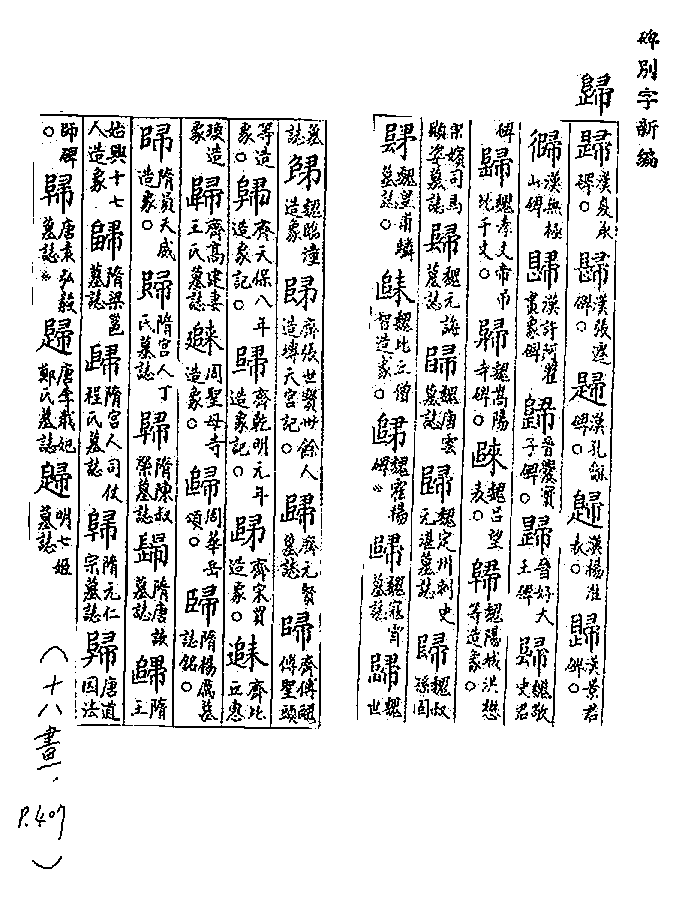 碑別字新編
歸
歸漢夏承碑。歸漢張遷碑。歸漢孔龢碑。歸漢楊淮表。歸漢景君碑。
歸漢無極山碑 歸漢許阿瞿畫象碑 歸晉爨寶子碑。歸晉好大王碑 歸魏敬史君
碑 歸魏孝文帝弔比干文。歸魏嵩陽寺碑。歸魏呂望表。歸魏陽城洪懋等造象。
宗嬪司馬顯姿墓誌 歸魏元誨墓誌 歸魏唐雲墓誌 歸魏定州刺史元湛墓誌 歸魏叔孫固
歸魏皇甫驎墓誌。歸魏比丘僧智造象。歸魏霍揚碑。歸魏寇霄墓誌 歸魏世
墓誌 歸魏臨潼造象 歸齊張世寶卅餘人造塼天宮記。歸齊元賢墓誌 歸齊傅醜傅聖頭
等造象。歸齊天保八年造象記。歸齊乾明元年造象記。歸齊宋買造象。歸齊比丘惠
瓊造象 歸齊高建妻王氏墓誌 歸周聖母寺造象。歸周華岳頌。歸隋楊厲墓誌銘。
歸隋貟天威造象。歸隋宮人丁氏墓誌 歸隋陳叔榮墓誌 歸隋唐該墓誌 歸隋王
始興十七人造象 歸隋梁邕墓誌 歸隋宮人司仗程氏墓誌 歸隋元仁宗墓誌 歸唐道因法
師碑。歸唐袁弘毅墓誌。歸唐李我妃鄭氏墓誌 歸明七姬墓誌
(十八畫.
P.407)